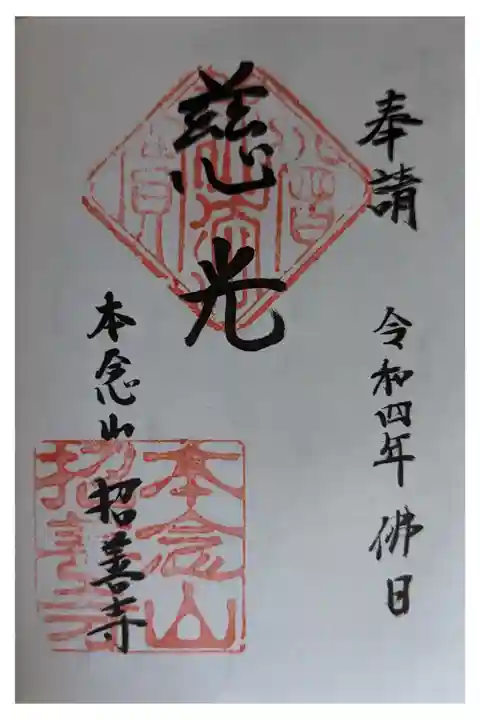 奉請 令和四年 佛日
慈光
本念山 招善寺
本念山
招善寺